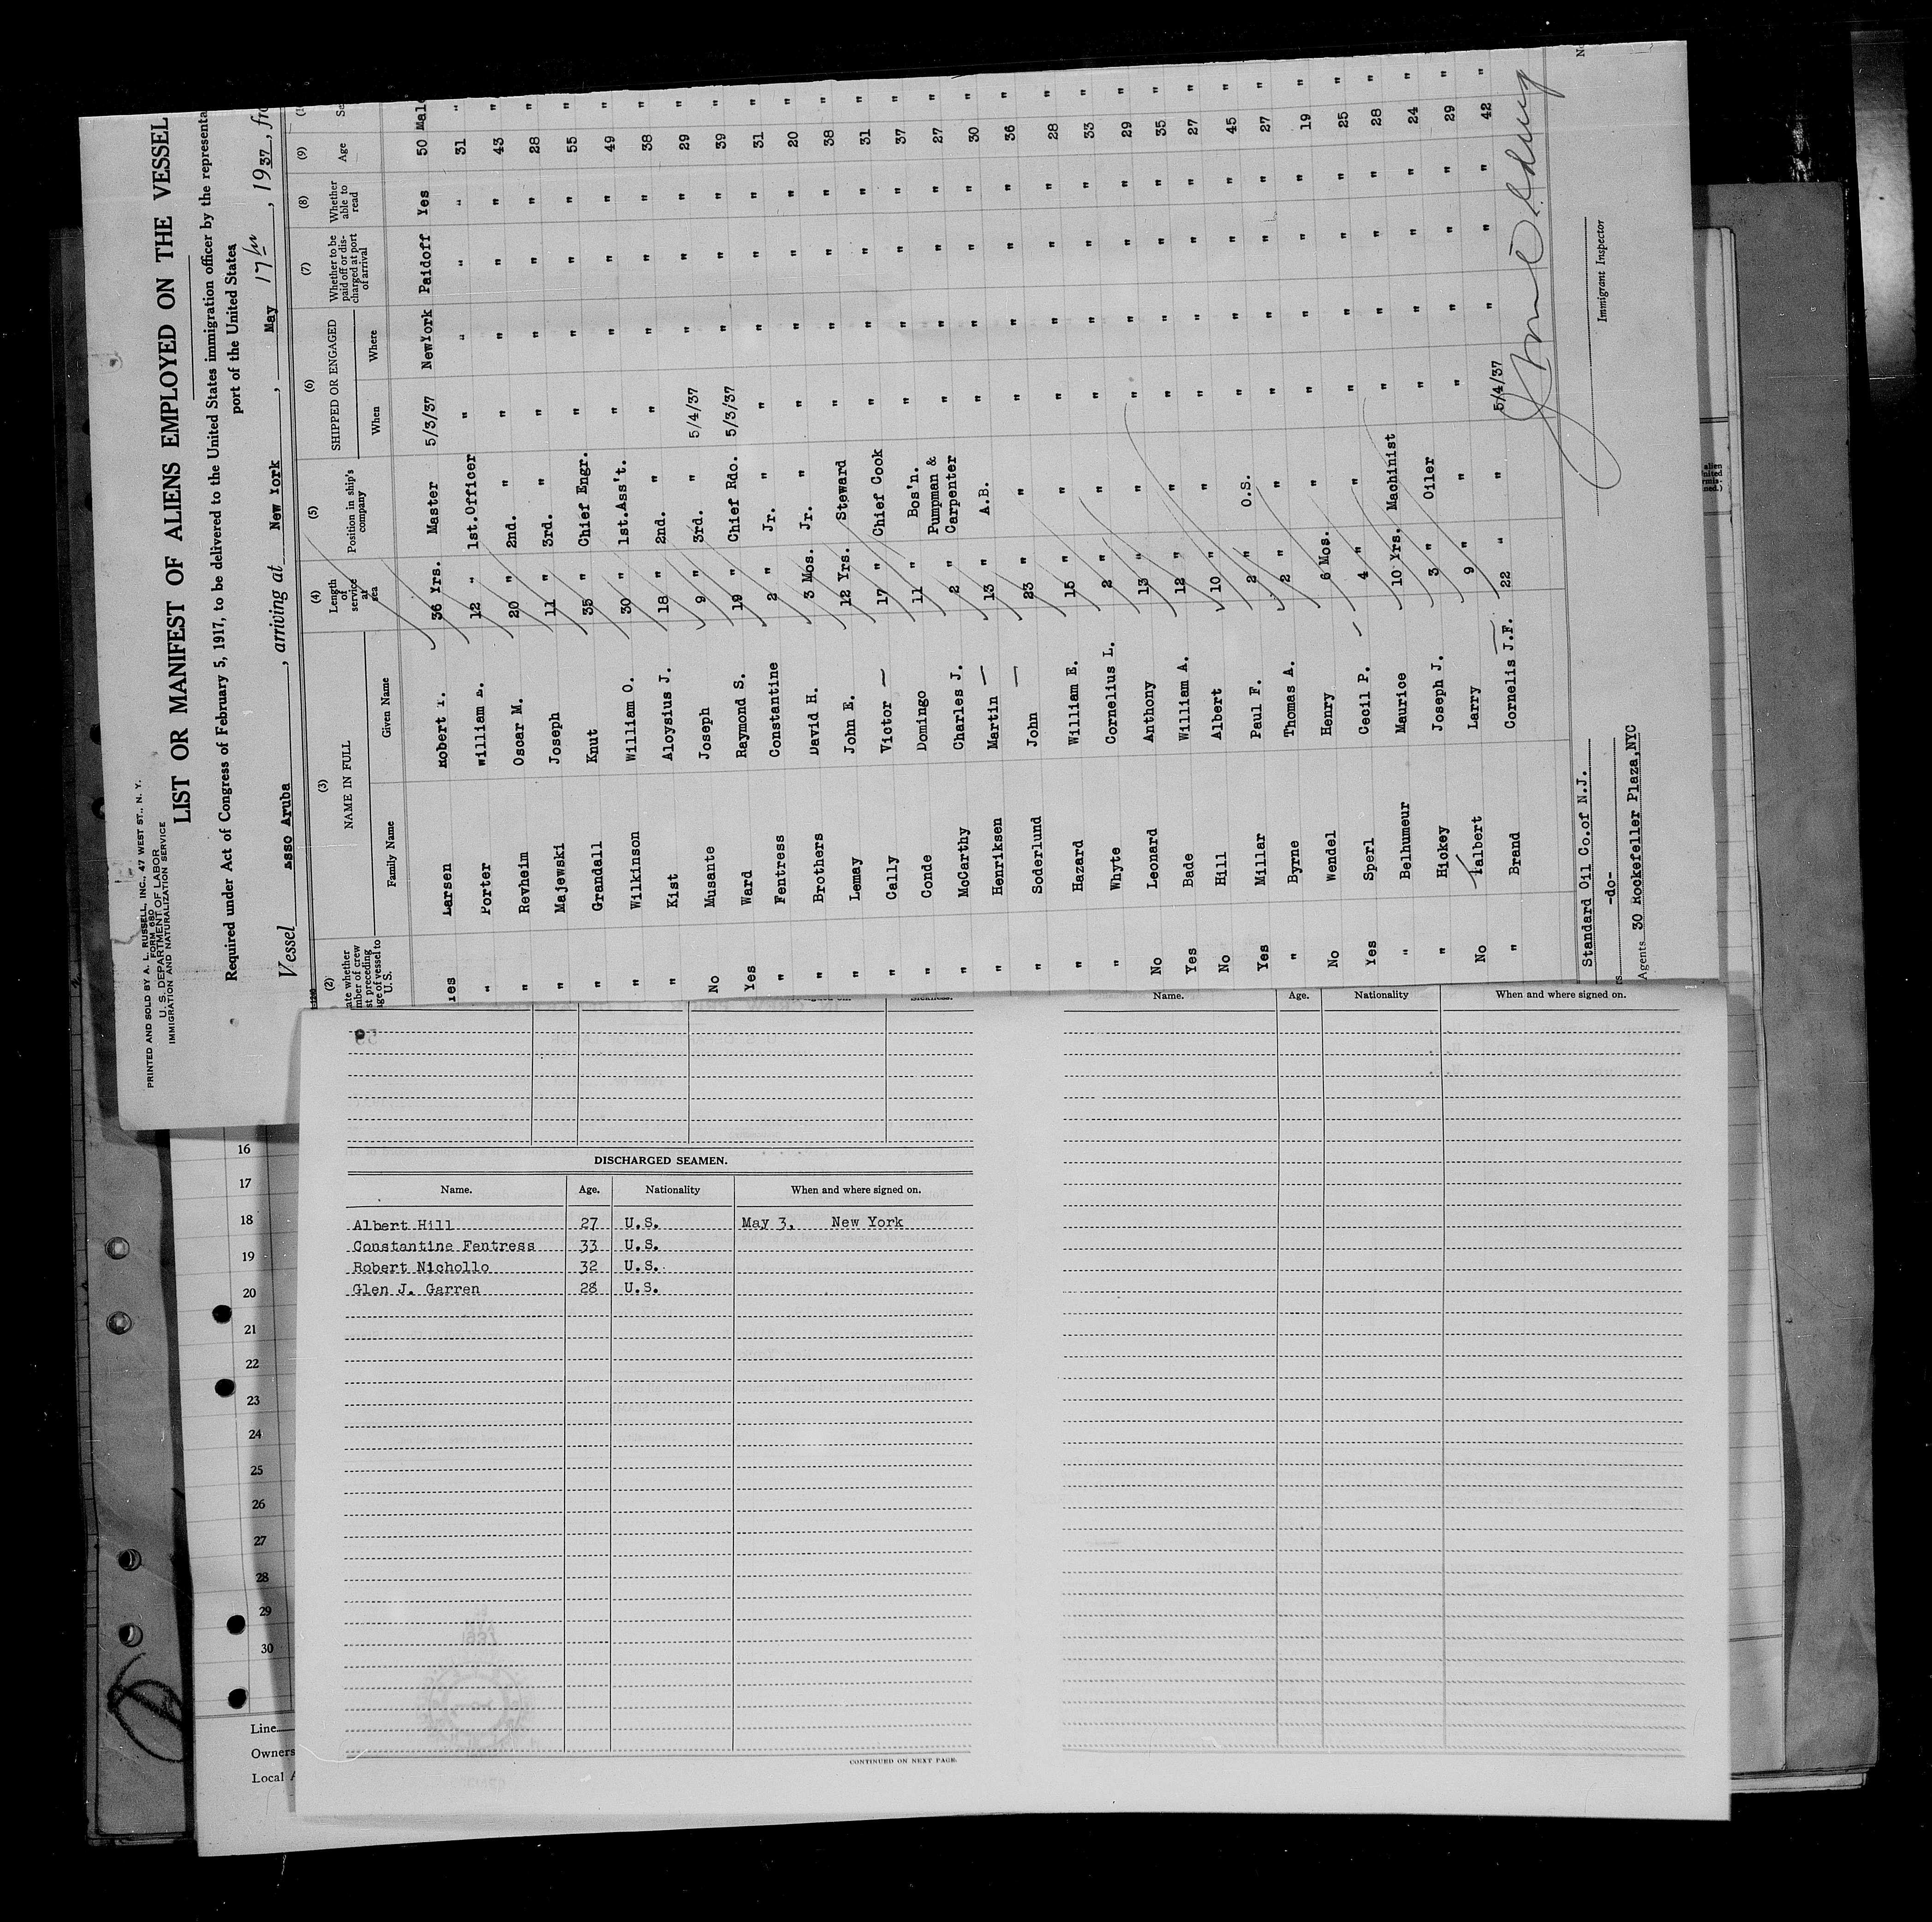 PRINTED AND SOLD BY A. L. RUSSELL, INC., 47 WEST ST., N. Y.
FORM 680
U. S. DEPARTMENT OF LABOR
IMMIGRATION AND NATURALIZATION SERVICE
LIST OR MANIFEST OF ALIENS EMPLOYED ON THE VESSEL
Required under Act of Congress of February 5, 1917, to be delivered to the United States immigration officer by the representa
port of the United States
Vessel Esso Aruba, arriving at New York, May 17th, 1937, fro
(2) (3) (4) (5) (6) (7) (8) (9)
ate whether mber of crew st preceding age of vessel to U. S. NAME IN FULL Length of service at sea Position in ship's company SHIPPED OR ENGAGED Whether to be paid off or discharged at port of arrival Whether able to read Age Se
Family Name Given Name When Where
Yes Larsen Robert T. 36 Yrs. Master 5/3/37 NewYork Paidoff Yes 50 Male
" Porter William E. 12 " 1st.Officer " " " " 31 "
" Revheim Oscar M. 20 " 2nd. " " " " " 43 "
" Majewski Joseph 11 " 3rd. " " " " " 28 "
" Grandall Knut 35 " Chief Engr. " " " " 55 "
" Wilkinson William O. 30 " 1st.Ass't. " " " " 49 "
" Kist Aloysius J. 18 " 2nd. " " " " " 38 "
No Musante Joseph 9 " 3rd. " 5/4/37 " " " 29 "
Yes Ward Raymond S. 19 " Chief Rdo. 5/3/37 " " " 39 "
" Fentress Constantine 2 " Jr. " " " " " 31 "
" Brothers David H. 3 Mos. Jr. " " " " " 20 "
" Lemay John E. 12 Yrs. Steward " " " " 38 "
" Cally Victor 17 " Chief Cook " " " " 31 "
" Conde Domingo 11 " Bos'n. " " " " 37 "
" McCarthy Charles J. 2 " Pumpman & Carpenter " " " " 27 "
" Henriksen Martin 13 " A.B. " " " " 30 "
" Soderlund John 23 " " " " " " 36 "
" Hazard William E. 15 " " " " " " 28 "
" Whyte Cornelius L. 2 " " " " " " 33 "
No Leonard Anthony 13 " " " " " " 29 "
Yes Bade William A. 12 " " " " " " 35 "
No Hill Albert 10 " " " " " " 27 "
Yes Millar Paul F. 2 " O.S. " " " " 45 "
" Byrne Thomas A. 2 " " " " " " 27 "
No Wendel Henry 6 Mos. " " " " " 19 "
Yes Sperl Cecil P. 4 " " " " " " 25 "
" Belhumeur Maurice 10 Yrs. Machinist " " " " 28 "
" Hickey Joseph J. 3 " Oiler " " " " 24 "
No Talbert Larry 9 " " " " " " 29 "
" Brand Cornelis J.F. 22 " " 5/4/37 " " " 42 "
Standard Oil Co.of N.J.
-do-
Agents 30 Rockefeller Plaza,NYC
Immigrant Inspector
Name. Age. Nationality When and where signed on.
DISCHARGED SEAMEN.
Name. Age. Nationality When and where signed on.
Albert Hill 27 U.S. May 3, New York
Constantine Fentress 33 U.S.
Robert Nichollo 32 U.S.
Glen J. Garren 28 U.S.
CONTINUED ON NEXT PAGE.
16
17
18
19
20
21
22
23
24
25
26
27
28
29
30
Line
Owners
Local A